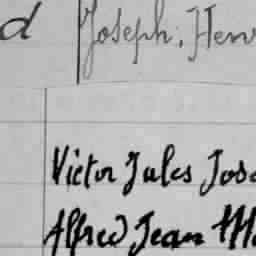 d Joseph, Henr
Victor Jules Jose
Alfred Jean